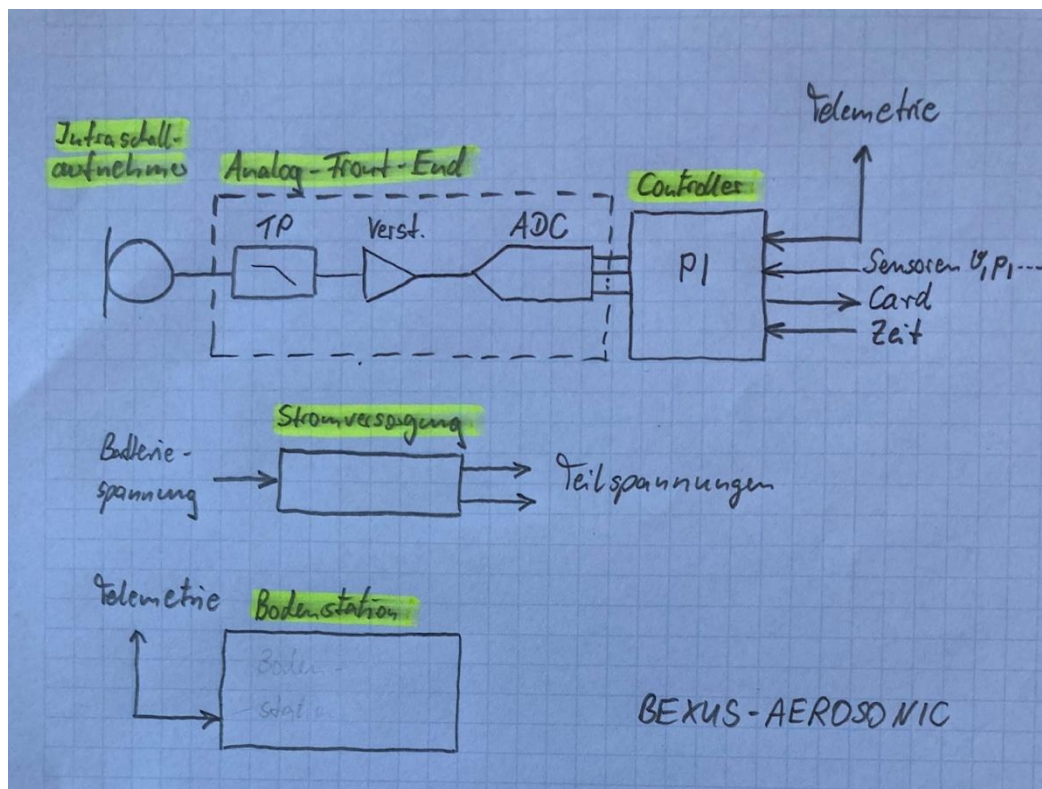 Infraschall-
aufnehmer
Analog-Front-End
TP
Verst.
ADC
Controller
PI
Telemetrie
Sensoren ϑ, p, ...
Card
Zeit
Stromversorgung
Batterie-
spannung
Teilspannungen
Telemetrie
Bodenstation
Boden-
BEXUS-AEROSONIC